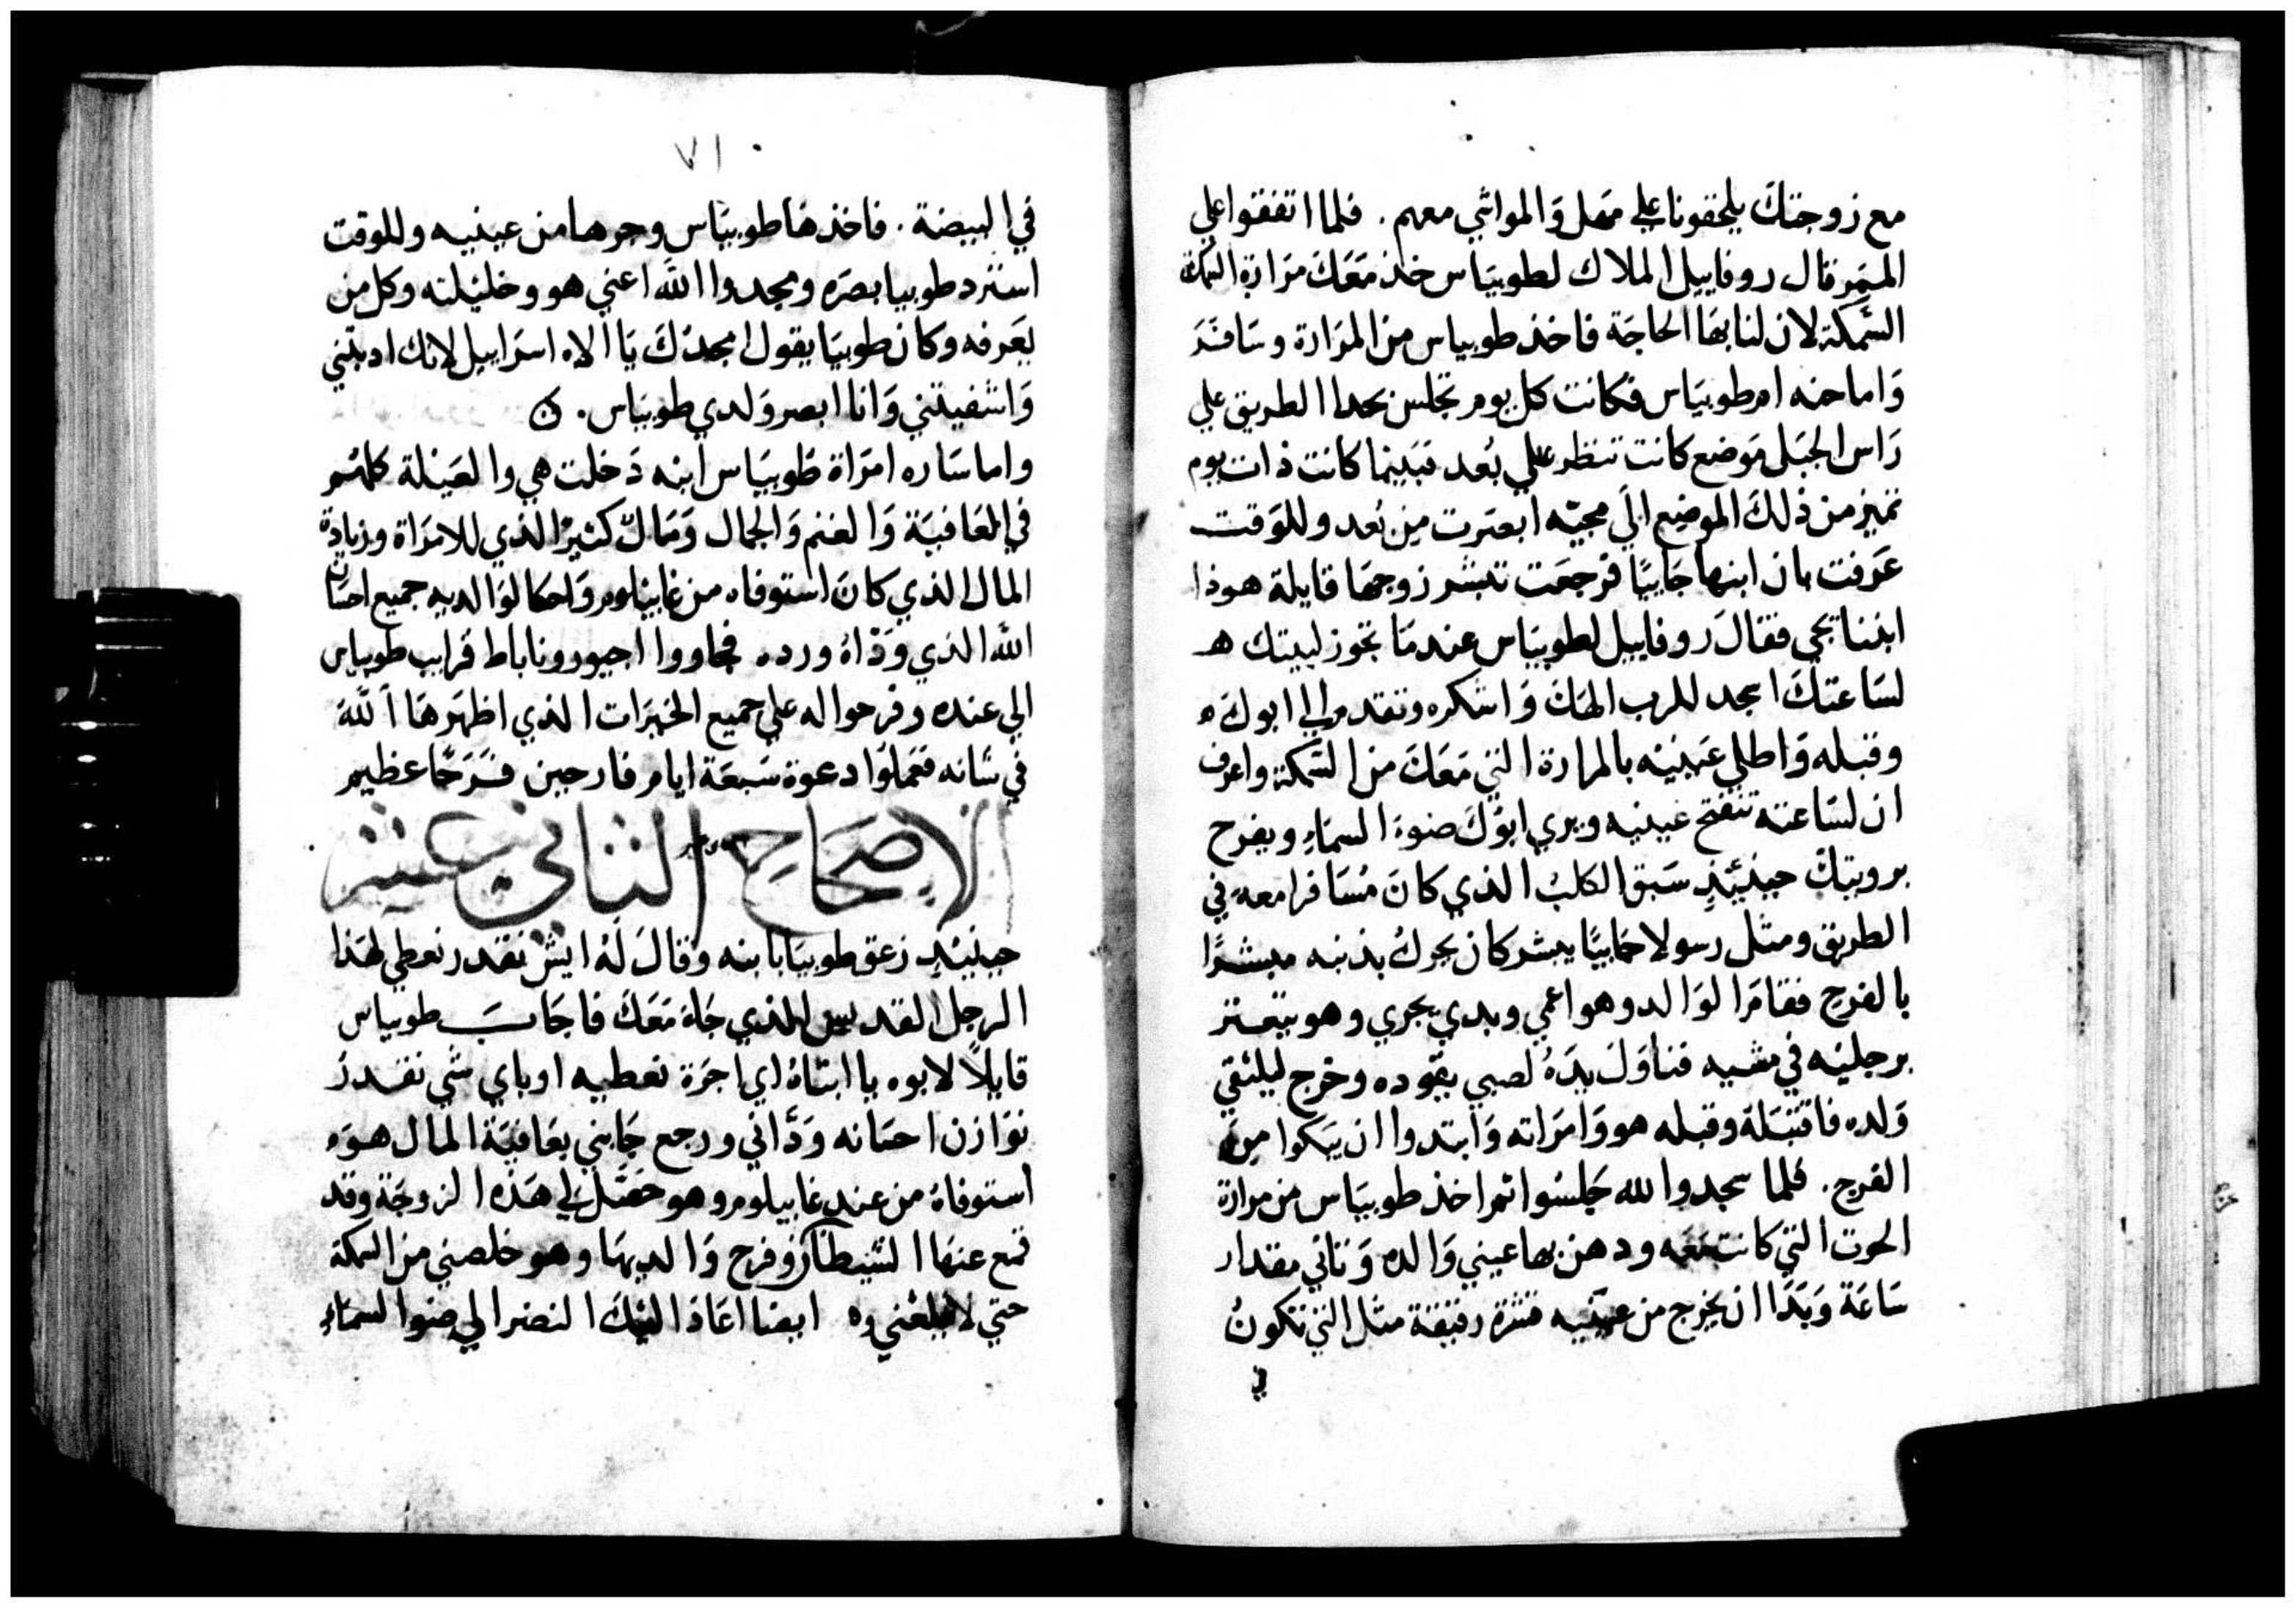 مع زوجتك يلحقونا علي مهل والمواشي معهم . فلما اتفقوا علي
الممر قال روفاييل الملاك لطوبياس خذ معك مرارة السمكة
السمكة لان لنا بها الحاجة فاخذ طوبياس من المرارة وسافر
واما حنه ام طوبياس فكانت كل يوم تجلس بحدا الطريق علي
راس الجبل موضع كانت تنظر علي بعد فبينما كانت ذات يوم
تميز من ذلك الموضع الي مجيه ابصرت من بعد وللوقت
عرفت بان ابنها جاييا فرجعت تبشر زوجها قايلة هوذا
ابننا يجي فقال روفاييل لطوبياس عندما تجوز لبيتك
لساعتك اسجد للرب الهك واشكره وتقدم الي ابوك
وقبله واطلي عينيه بالمرارة التي معك من السمكة واعرف
ان لساعته تنفتح عينيه ويري ابوك ضوء السماء ويفرح
برويتك حينيذ سبق الكلب الذي كان مسافرا معه في
الطريق ومثل رسولا جاييا يبشر كان يحرك بذنبه مبشرا
بالفرح فقام الوالد وهو اعمي وبدي يجري وهو يتعتر
برجليه في مشيه فناول يده لصبي يقوده وخرج ليلتقي
ولده فاقتبله وقبله هو وامراته وابتدوا ان يبكوا من
الفرح . فلما سجدوا لله جلسوا ثم اخذ طوبياس من مرارة
الحوت التي كانت معه ودهن بها عيني والده وتاني مقدار
ساعة وبدا ان يخرج من عينيه قشرة رقيقة مثل التي تكون
في
٧١
في البيضة . فاخذها طوبياس وجرها من عينيه وللوقت
استرد طوبيا بصره ومجدوا الله اعني هو وخليلته وكل من
يعرفه وكان طوبيا يقول امجدك يا الاه اسراييل لانك ادبتني
واشفيتني وانا ابصر ولدي طوبياس .
واما ساره امراة طوبياس ابنه دخلت هي والعيلة كلهم
في العافية والغنم والجمال ومال كثير الذي للامراة وزيادة
المال الذي كان استوفاه من غابيلوم واحكا لوالديه جميع احسان
الله الذي وداه ورده فجاووا احيور وناباط قرايب طوبياس
الي عنده وفرحوا له علي جميع الخيرات الذي اظهرها الله
في شانه فعملوا دعوة سبعة ايام فارحين فرحا عظيم
الاصحاح الثاني عشر
حينيذ زعق طوبيا بابنه وقال له ايش نقدر نعطي لهذا
الرجل القديس الذي جاء معك فاجاب طوبياس
قايلا لابوه يا ابتاه اي اجرة نعطيه او باي شي نقدر
نوازن احسانه وداني ورجع جابني بعافية المال هو
استوفاه من عند غابيلوم وهو حصل لي هذه الزوجة وقد
قمع عنها الشيطان وفرح والديها وهو خلصني من السمكة
حتي لا تبلعني ايضا اعاذ اليك النضر الي ضوا السماء